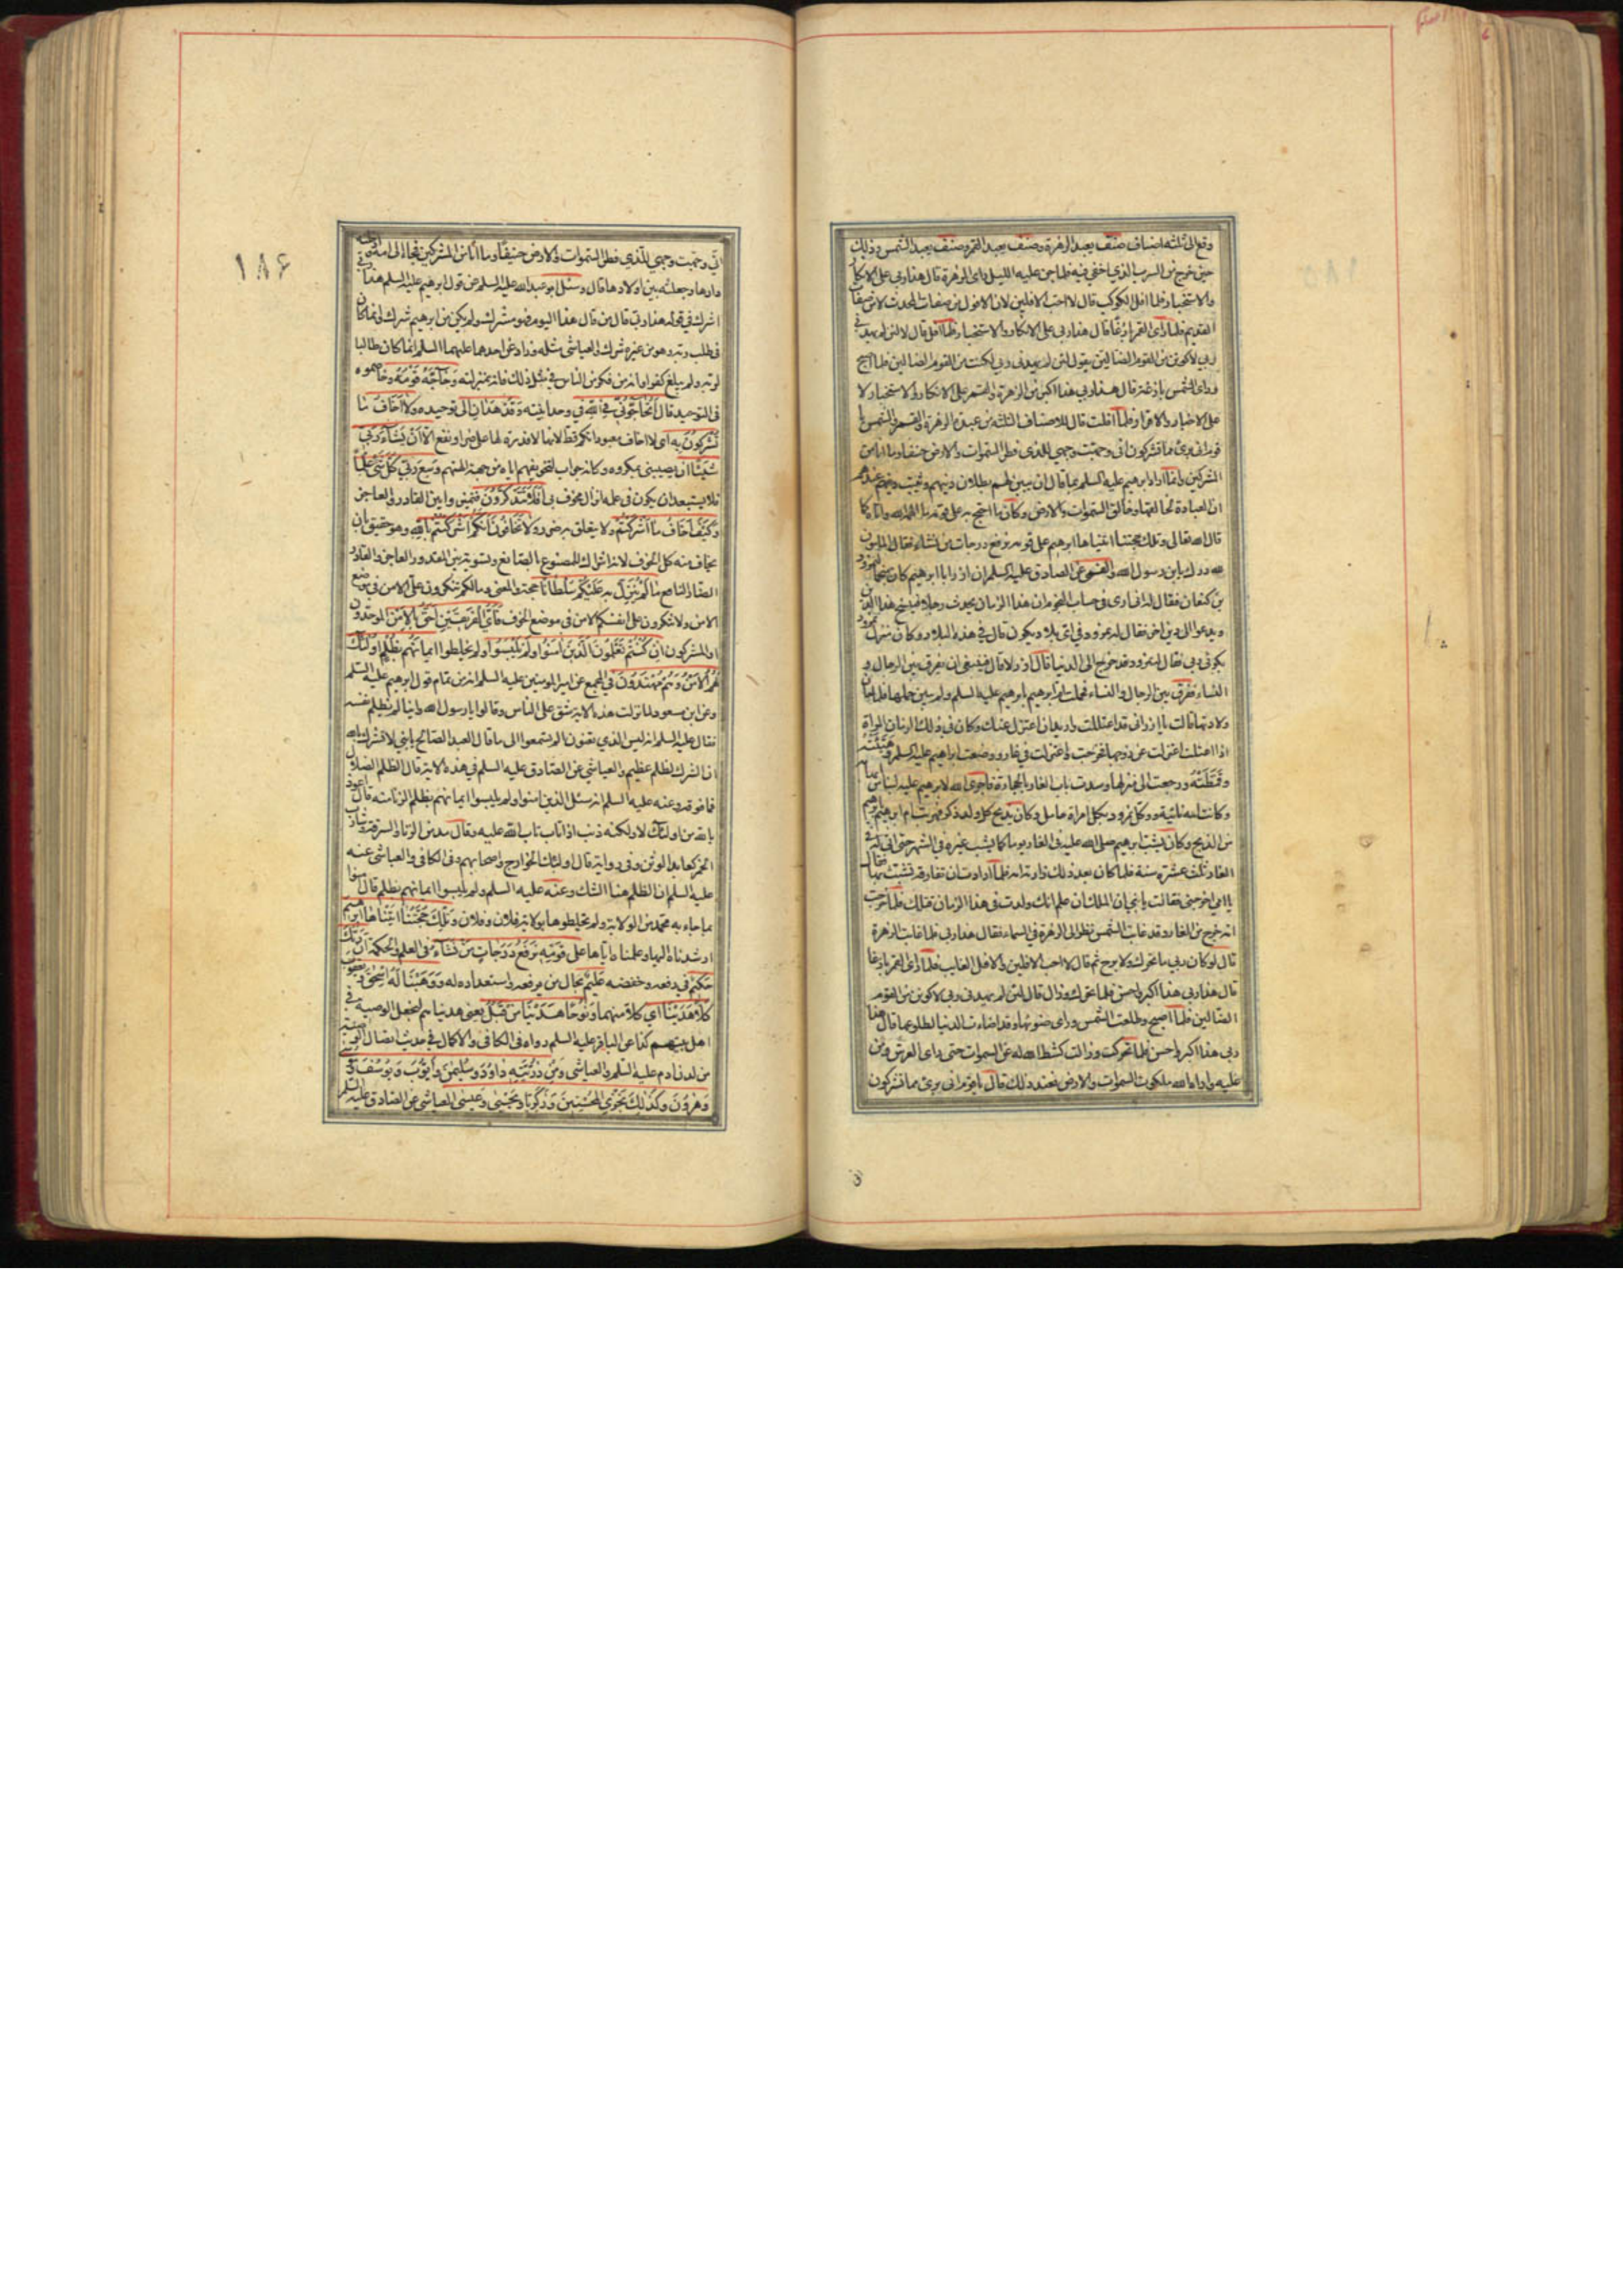 وقع الى ثلثة اصناف صنف يعبد الزهرة وصنف يعبد القمر وصنف يعبد الشمس وذلك
حين خرج من السرب الذي اخفي فيه فلما جن عليه الليل راى الزهرة قال هذا ربي على الانكار
والاستخبار فلما افل الكوكب قال لا احب الافلين لان الافول من صفات المحدث لا من صفات
القديم فلما راى القمر بازغا قال هذا ربي على الانكار والاستخبار فلما افل قال لئن لم يهدني
ربي لاكونن من القوم الضالين يقول لئن لم يهدني ربي لكنت من القوم الضالين فلما اصبح
وراى الشمس بازغة قال هذا ربي هذا اكبر من الزهرة والقمر على الانكار والاستخبار لا
على الاخبار والاقرار فلما افلت قال للاصناف الثلثة من عبدة الزهرة والقمر والشمس يا
قوم اني بريء مما تشركون اني وجهت وجهي للذي فطر السموات والارض حنيفا وما انا من
المشركين وانما اراد ابرهيم عليه السلم بما قال ان يبين لهم بطلان دينهم ويثبت عندهم
ان العبادة تحق لخالقها وخالق السموات والارض وكان ما احتج به على قومه مما الهمه الله واتاه كما
قال الله تعالى وتلك حجتنا اتيناها ابرهيم على قومه نرفع درجات من نشاء فقال المامون
لله درك يابن رسول الله والقمي عن الصادق عليه السلم ان ازر ابا ابرهيم كان منجما لنمرود
بن كنعان فقال له اني ارى في حساب النجوم ان هذا الزمان يحدث رجلا فينسخ هذا الدين
ويدعو الى دين اخر فقال له نمرود في اي بلاد يكون قال في هذه البلاد وكان منزل نمرود
بكوثى ربى فقال له نمرود قد خرج الى الدنيا قال ازر لا قال فينبغي ان يفرق بين الرجال و
النساء ففرق بين الرجال والنساء فحملت ام ابرهيم بابرهيم عليه السلم ولم يبين حملها فلما حان
ولادتها قالت يا ازر اني قد اعتللت واريد ان اعتزل عنك وكان في ذلك الزمان المراة
اذا اعتلت اعتزلت عن زوجها فخرجت واعتزلت في غار ووضعت ابراهيم عليه السلم وهيئته
وقمطته ورجعت الى منزلها وسدت باب الغار بالحجارة فاجرى الله لابرهيم عليه لبنا من ابهامه
وكانت امه تاتيه ووكل نمرود بكل امراة حامل وكان يذبح كل ولد ذكر فهربت ام ابرهيم بابرهيم
من الذبح وكان يشب ابرهيم صلى الله عليه في الغار يوما كما يشب غيره في الشهر حتى اتى له في
الغار ثلث عشرة سنة فلما كان بعد ذلك زارته امه فلما ارادت ان تفارقه تشبث بها فقال
يا امي اخرجيني فقالت يا بني ان الملك ان علم انك ولدت في هذا الزمان قتلك فلما خرجت
امه خرج من الغار وقد غابت الشمس نظر الى الزهرة في السماء فقال هذا ربي فلما غابت الزهرة
قال لو كان ربي ما تحرك ولا برح ثم قال لا احب الافلين والافل الغايب فلما راى القمر بازغا
قال هذا ربي هذا اكبر واحسن فلما تحرك وزال قال لئن لم يهدني ربي لاكونن من القوم
الضالين فلما اصبح وطلعت الشمس وراى ضوئها وقد اضاءت الدنيا لطلوعها قال هذا
ربي هذا اكبر واحسن فلما تحركت وزالت كشط الله له عن السموات حتى راى العرش ومن
عليه واراه الله ملكوت السموات والارض فعند ذلك قال يا قوم اني بريء مما تشركون
١٨۶
اني وجهت وجهي للذي فطر السموات والارض حنيفا وما انا من المشركين فجاء الى امه وادخلته
دارها وجعلته بين اولادها قال وسئل ابو عبد الله عليه السلم عن قول ابرهيم عليه السلم هذا ربي
اشرك في قوله هذا ربي قال من قال هذا اليوم فهو مشرك ولم يكن من ابرهيم شرك وانما كان
في طلب ربه وهو من غيره شرك والعياشي مثله وزاد عن احدهما عليهما السلم انما كان طالبا
لربه ولم يبلغ كفرا وانه من فكر من الناس في مثل ذلك فانه بمنزلته وحاجه قومه وخاصموه
في التوحيد قال اتحاجوني في الله في وحدانيته وقد هدان الى توحيده ولا اخاف ما
تشركون به اي لا اخاف معبوداتكم قط لانها لا قدرة لها على ضر او نفع الا ان يشاء ربي
شيئا ان يصيبني بمكروه وكانه جواب لتخويفهم اياه من جهة الهتهم وسع ربي كل شيء علما
فلا يستبعد ان يكون في علمه انزال مخوف بي افلا تتذكرون فتميزوا بين القادر والعاجز
وكيف اخاف ما اشركتم ولا يتعلق به ضرر ولا تخافون انكم اشركتم بالله وهو حقيق بان
يخاف منه كل الخوف لانه اشراك للمصنوع بالصانع وتسوية بين المقدور العاجز والقادر
الضار النافع ما لم ينزل به عليكم سلطانا حجة والمعنى وما لكم تنكرون علي الامن في موضع
الامن ولا تنكرون على انفسكم الامن في موضع الخوف فاي الفريقين احق بالامن الموحدون
او المشركون ان كنتم تعلمون الذين امنوا ولم يلبسوا ولم يخلطوا ايمانهم بظلم اولئك
لهم الامن وهم مهتدون في المجمع عن امير المؤمنين عليه السلم انه من تمام قول ابرهيم عليه السلم
وعن ابن مسعود لما نزلت هذه الاية شق على الناس وقالوا يا رسول الله واينا لم يظلم نفسه
فقال عليه السلم انه ليس الذي تعنون الم تسمعوا الى ما قال العبد الصالح يا بني لا تشرك بالله
ان الشرك لظلم عظيم والعياشي عن الصادق عليه السلم في هذه الاية قال الظلم الضلال
فما فوقه وعنه عليه السلم انه سئل الذين امنوا ولم يلبسوا ايمانهم بظلم الزنا منه قال اعوذ
بالله من اولئك لا ولكنه ذنب اذا تاب تاب الله عليه وقال مدمن الزنا والسرقة وشارب
الخمر كعابد الوثن وفي رواية قال اولئك الخوارج واصحابهم وفي الكافي والعياشي عنه
عليه السلم ان الظلم هنا الشك وعنه عليه السلم ولم يلبسوا ايمانهم بظلم قال امنوا
بما جاء به محمد من الولاية ولم يخلطوها بولاية فلان وفلان وتلك حجتنا اتيناها ابرهيم
ارشدناه اليها وعلمناه اياها على قومه نرفع درجات من نشاء في العلم والحكمة ان ربك
حكيم في رفعه وخفضه عليم بحال من يرفعه واستعداده له ووهبنا له اسحق ويعقوب
كلا هدينا اي كلا منهما ونوحا هدينا من قبل يعني هديناهم لنجعل الوصية في
اهل بيتهم كذا عن الباقر عليه السلم رواه في الكافي والاكمال في حديث اتصال الوصية
من لدن ادم عليه السلم والعياشي ومن ذريته داود وسليمن وايوب ويوسف وموسى
وهرون وكذلك نجزي المحسنين وزكريا ويحيى وعيسى العياشي عن الصادق عليه السلم